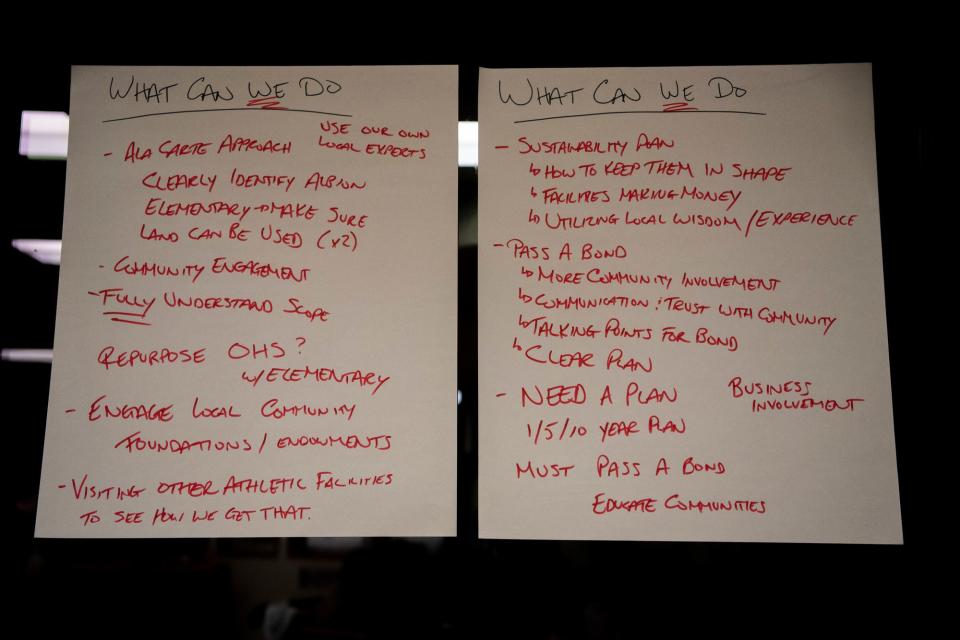 WHAT CAN WE DO
USE OUR OWN
LOCAL EXPERTS
- ALA CARTE APPROACH
CLEARLY IDENTIFY ALBION
ELEMENTARY → MAKE SURE
LAND CAN BE USED (x2)
- COMMUNITY ENGAGEMENT
- FULLY UNDERSTAND SCOPE
REPURPOSE OHS?
W/ ELEMENTARY
- ENGAGE LOCAL COMMUNITY
FOUNDATIONS / ENDOWMENTS
- VISITING OTHER ATHLETIC FACILITIES
TO SEE HOW WE GET THAT.
WHAT CAN WE DO
- SUSTAINABILITY PLAN
↳ HOW TO KEEP THEM IN SHAPE
↳ FACILITIES MAKING MONEY
↳ UTILIZING LOCAL WISDOM / EXPERIENCE
- PASS A BOND
↳ MORE COMMUNITY INVOLVEMENT
↳ COMMUNICATION : TRUST WITH COMMUNITY
↳ TALKING POINTS FOR BOND
↳ CLEAR PLAN
- NEED A PLAN
1/5/10 YEAR PLAN
BUSINESS
INVOLVEMENT
MUST PASS A BOND
EDUCATE COMMUNITIES